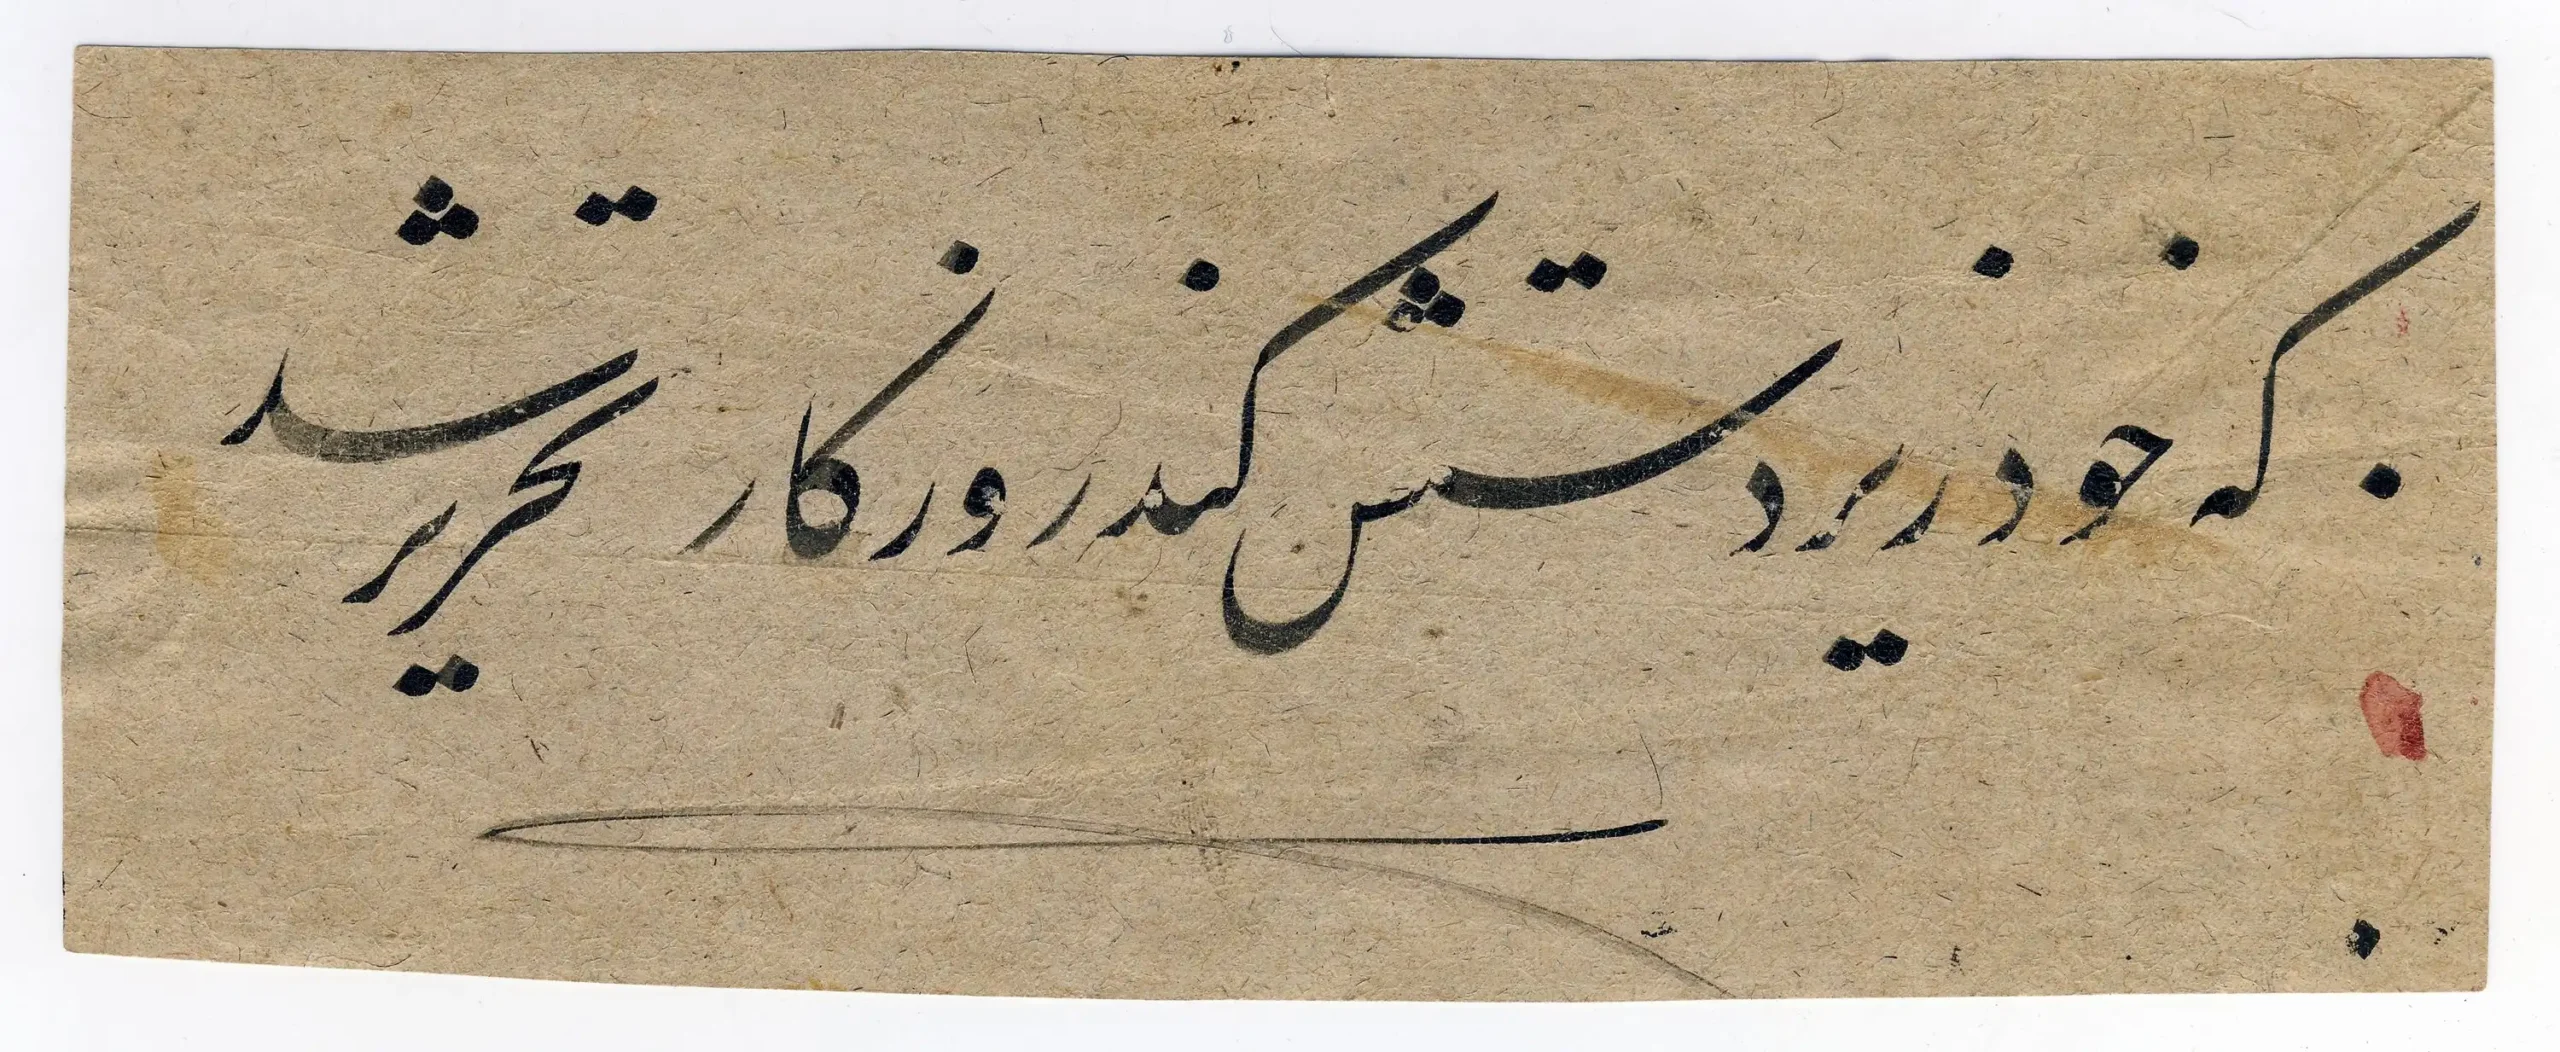 که خود زیردستش کند روزگار تحریر شد